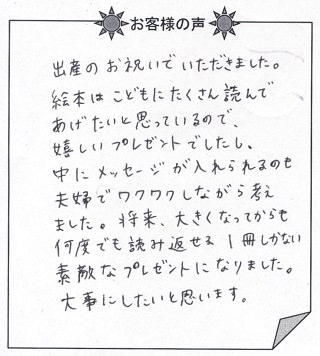 お客様の声
出産のお祝いでいただきました。
絵本はこどもにたくさん読んで
あげたいと思っているので、
嬉しいプレゼントでしたし、
中にメッセージが入れられるのも
夫婦でワクワクしながら考え
ました。将来、大きくなってからも
何度でも読み返せる1冊しかない
素敵なプレゼントになりました。
大事にしたいと思います。